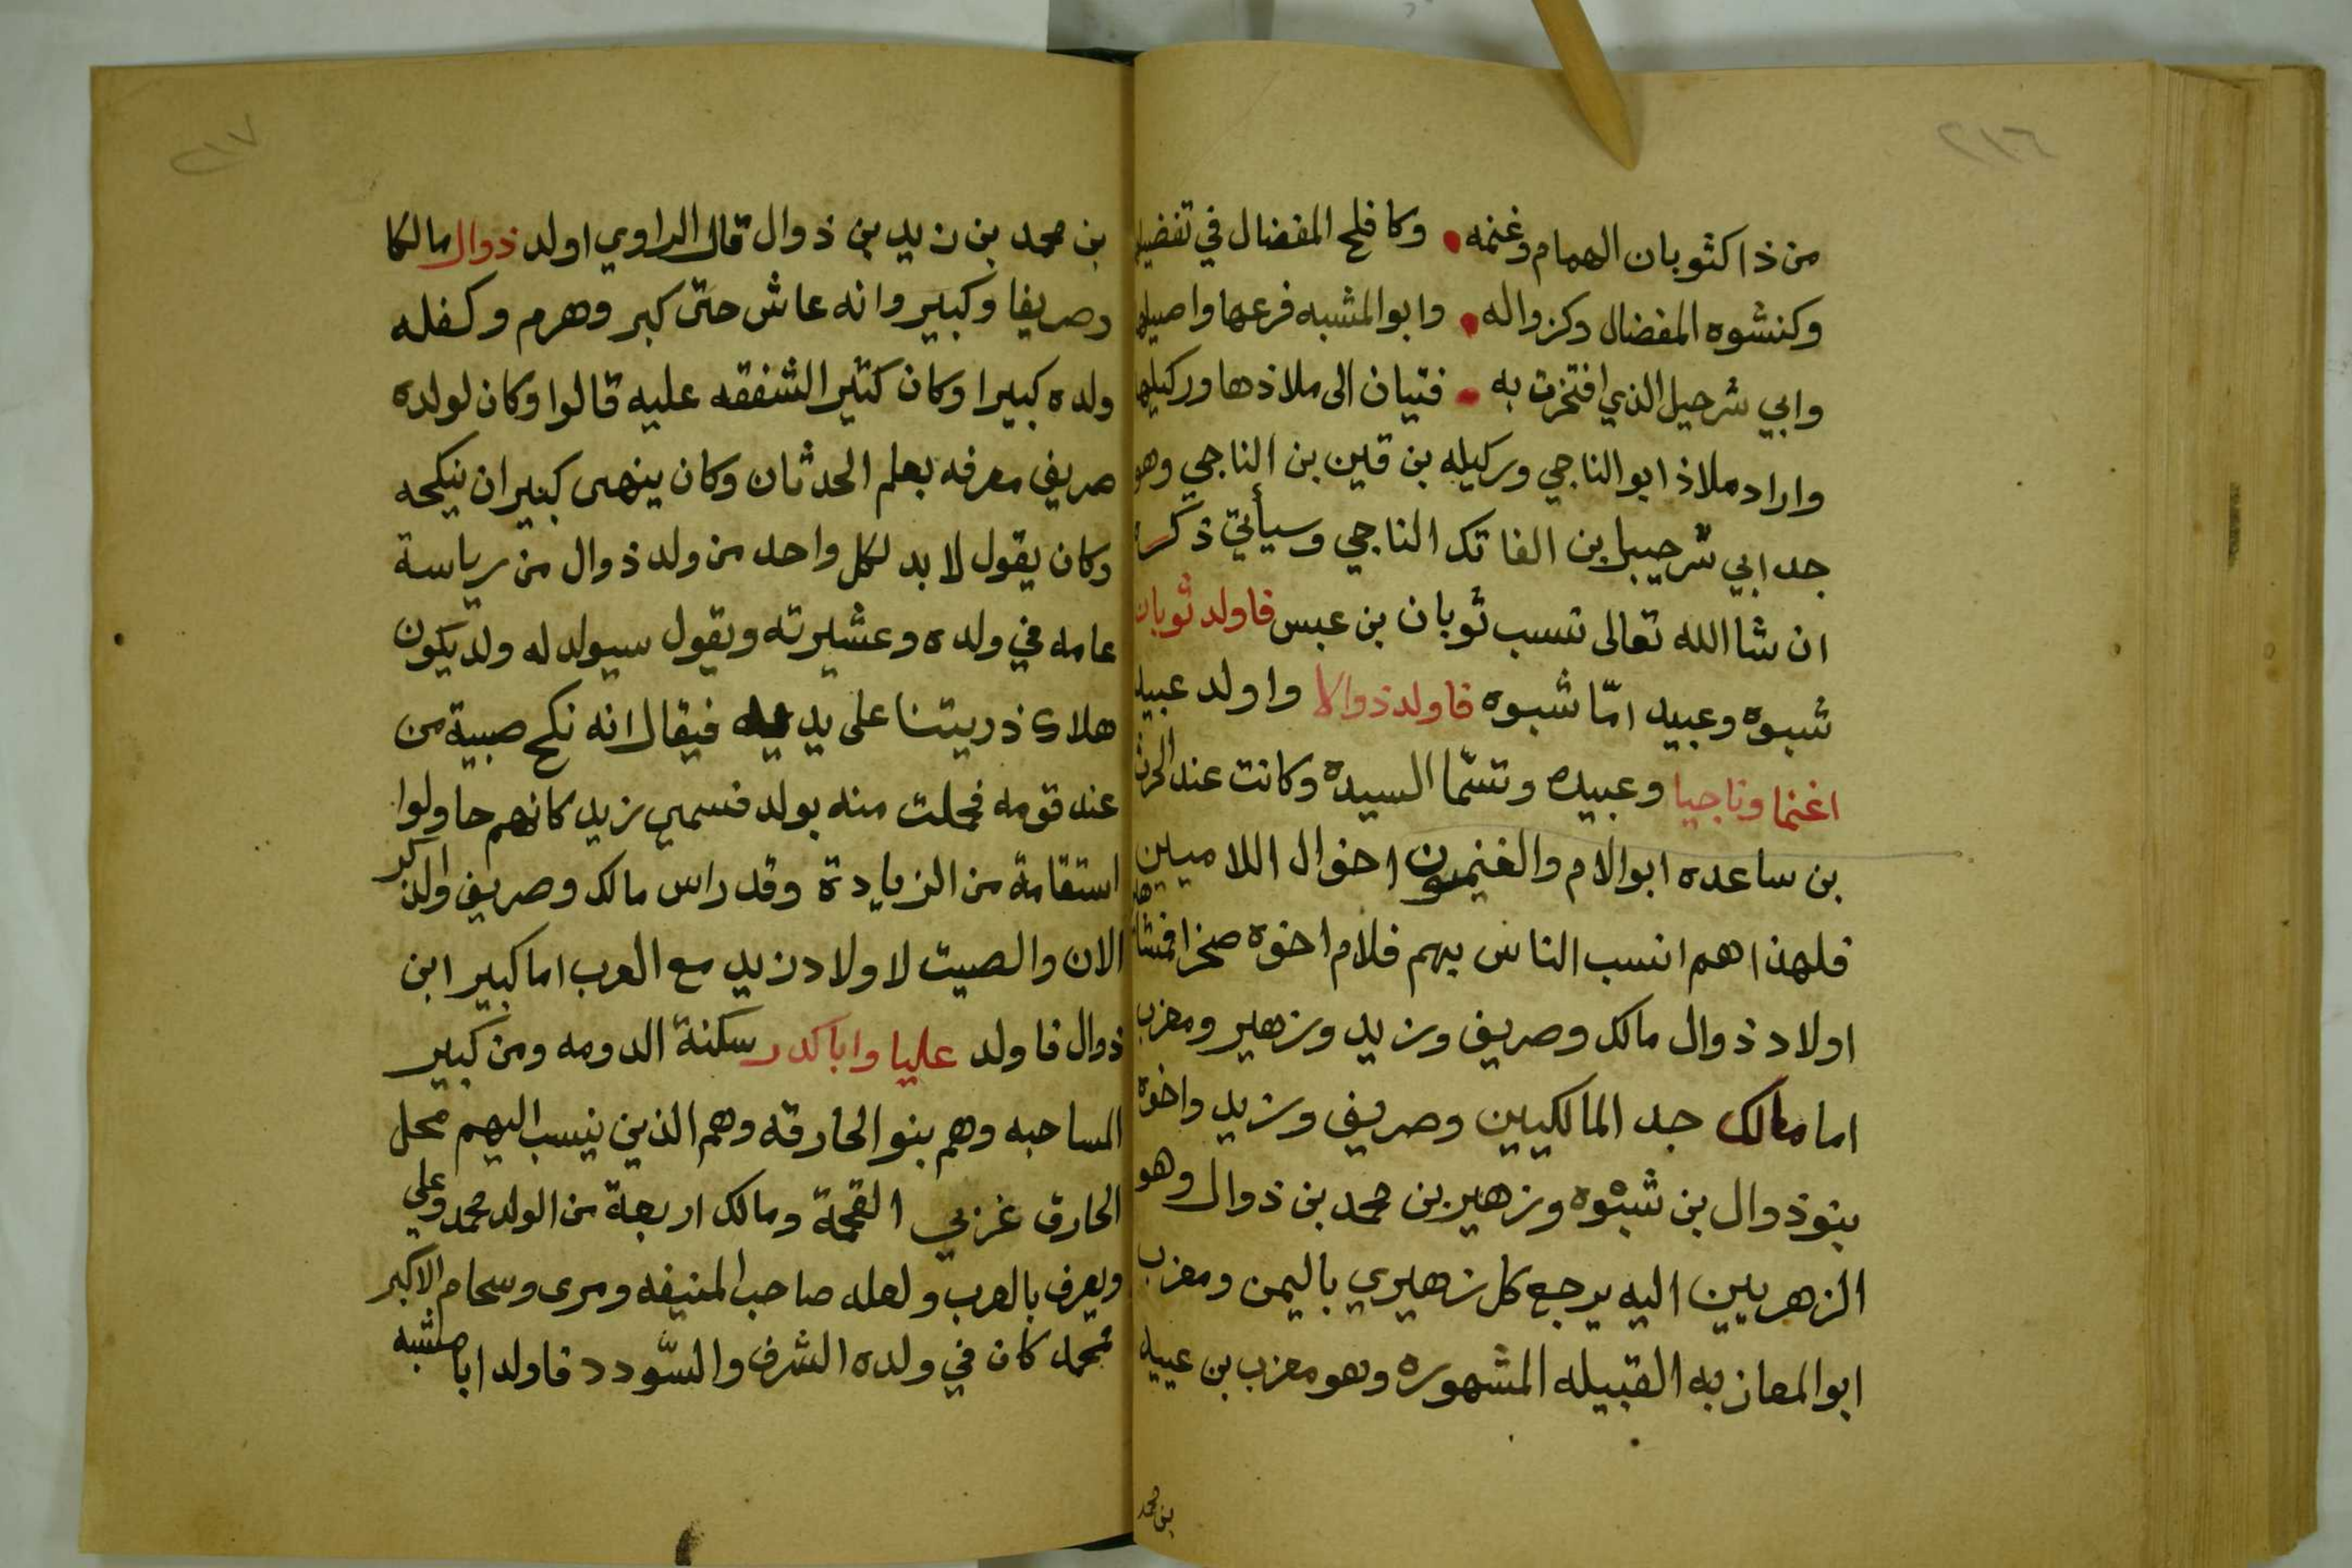 ٢١٦
من ذا كثوبان الهمام وغنمه • وكافلح المفضال في تفضيلها
وكنشوه المفضال وكزواله • وابو المشبه فرعها واصيلها
وابي شرحيل الذي افتخرت به • فتيان الى ملاذها وركيلها
واراد ملاذ ابو الناجي وركيله بن قين بن الناجي وهو
جد ابي شرحبيل بن الفاتك الناجي وسيأتي ذكره
ان شا الله تعالى نسب ثوبان بن عبس فاولد ثوبان
شبوه وعبيد امّا شبوه فاولد ذوالا واولد عبيد
اغنما وناجيا وعبيده وتسمّا السيدة وكانت عند الحرث
بن ساعده ابو الام والغنميون اخوال اللاميين
فلهذا هم انسب الناس بهم فلام اخوه صخر
اولاد ذوال مالك وصريف وزيد وزهير ومعزب
اما مالك جد المالكيين وصريف وزيد واخوة
بنو ذوال بن شبْوه وزهير بن محمد بن ذوال وهو
الزهريين اليه يرجع كل زهيري باليمن ومعزب
ابو المعازبه القبيله المشهوره وهو معزب بن عبيد
بن محمد
٢١٧
بن محمد بن زيد بن ذوال قال الراوي اولد ذوال مالكا
وصريفا وكبير وانه عاش حتى كبر وهرم وكفله
ولده كبيرا وكان كثير الشفقه عليه قالوا وكان لولده
صريف معرفه بعلم الحدثان وكان ينهى كبير ان ينكحه
وكان يقول لا بد لكل واحد من ولد ذوال من رياسة
عامه في ولده وعشيرته ويقول سيولد له ولد يكون
هلاك ذريتنا على يديه فيقال انه نكح صبية من
عند قومه فحملت منه بولد فسمي زيد كانهم حاولوا
استقامة من الزيادة وقد راس مالك وصريف والذكر
الان والصيت لاولاد زيد مع العرب اما كبير ابن
ذوال فاولد عليا وابا كدر سكنة الدومه ومن كبير
المساحبه وهم بنو الحارقه وهم الذين ينسب اليهم محل
الحارق غربي القحمة ومالك اربعة من الولد محمد وعلي
ويعرف بالعرب ولعله صاحب المنيفه ومرى وسحام الاكبر
محمد كان في ولده الشرف والسّودد فاولد ابا مشبه